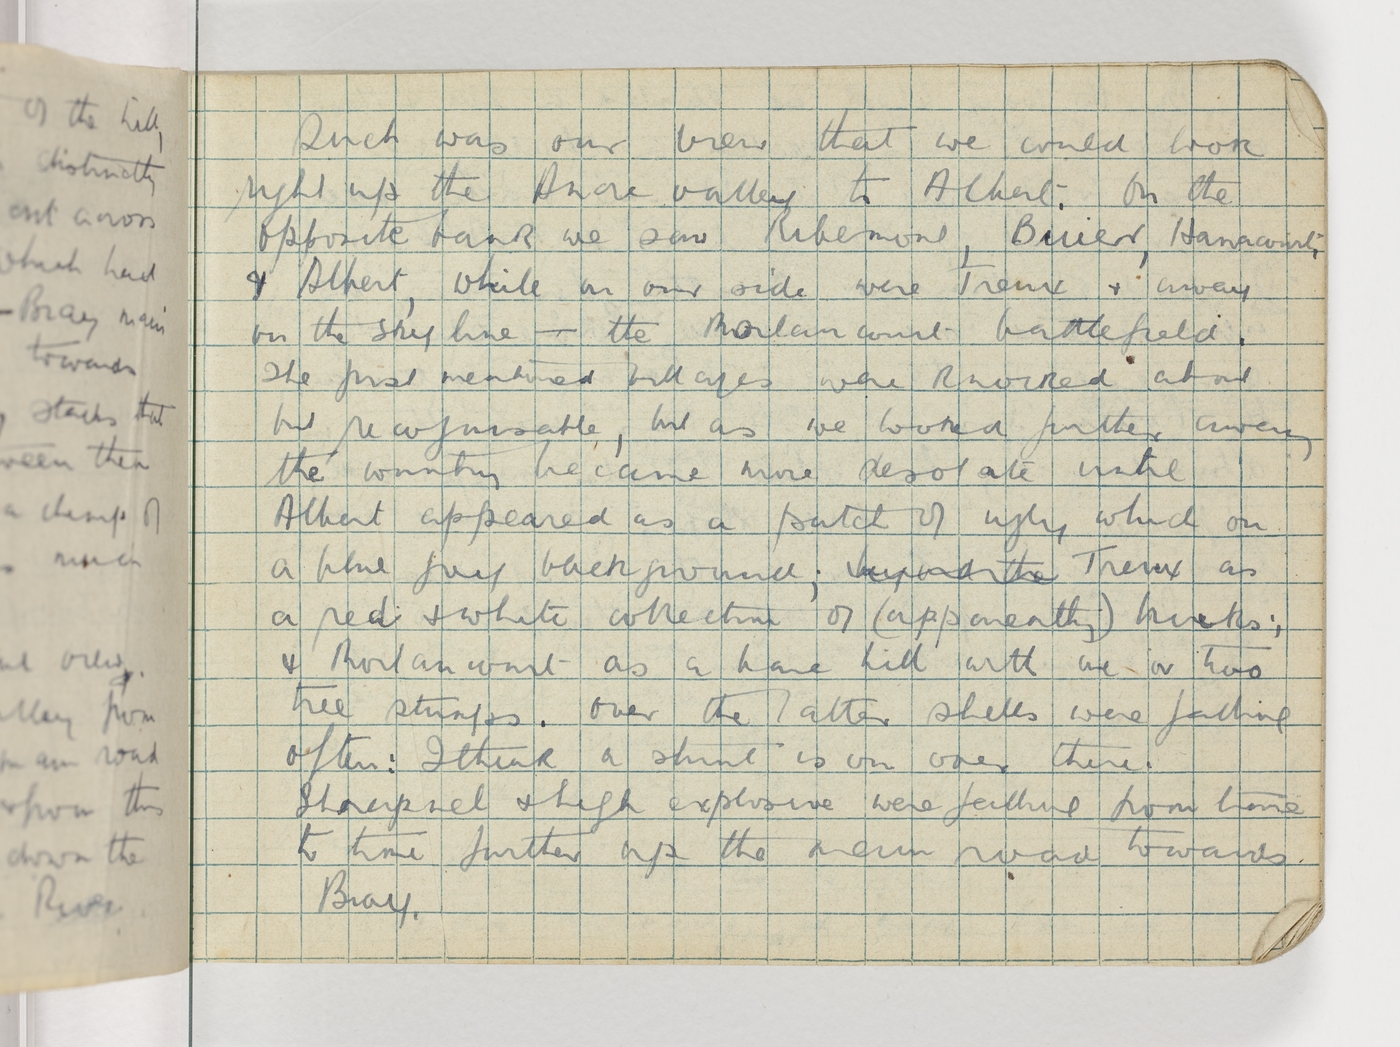 of the hill,
distinctly
out across
which had
- Bray main
towards
stacks that
ween then
a clump of
much
view.
valley from
road
from this
down the
River.
Such was our view that we could look
right up the Ancre valley to Albert. On the
opposite bank we saw Ribemont, Buire, Hanacourt,
& Albert, while on our side were Treux & away
on the sky line — the Morlancourt battlefield.
The first mentioned villages were knocked about
but recognisable, but as we looked further away
the country became more desolate until
Albert appeared as a patch of ugly which on
a blue gray background; beyond the Treux as
a red & white collection of (apparently) bricks;
& Morlancourt as a bare hill with one or two
tree stumps. Over the latter shells were falling
often: I think a stunt is on over there.
Shrapnel & high explosive were falling from time
to time further up the main road towards
Bray.